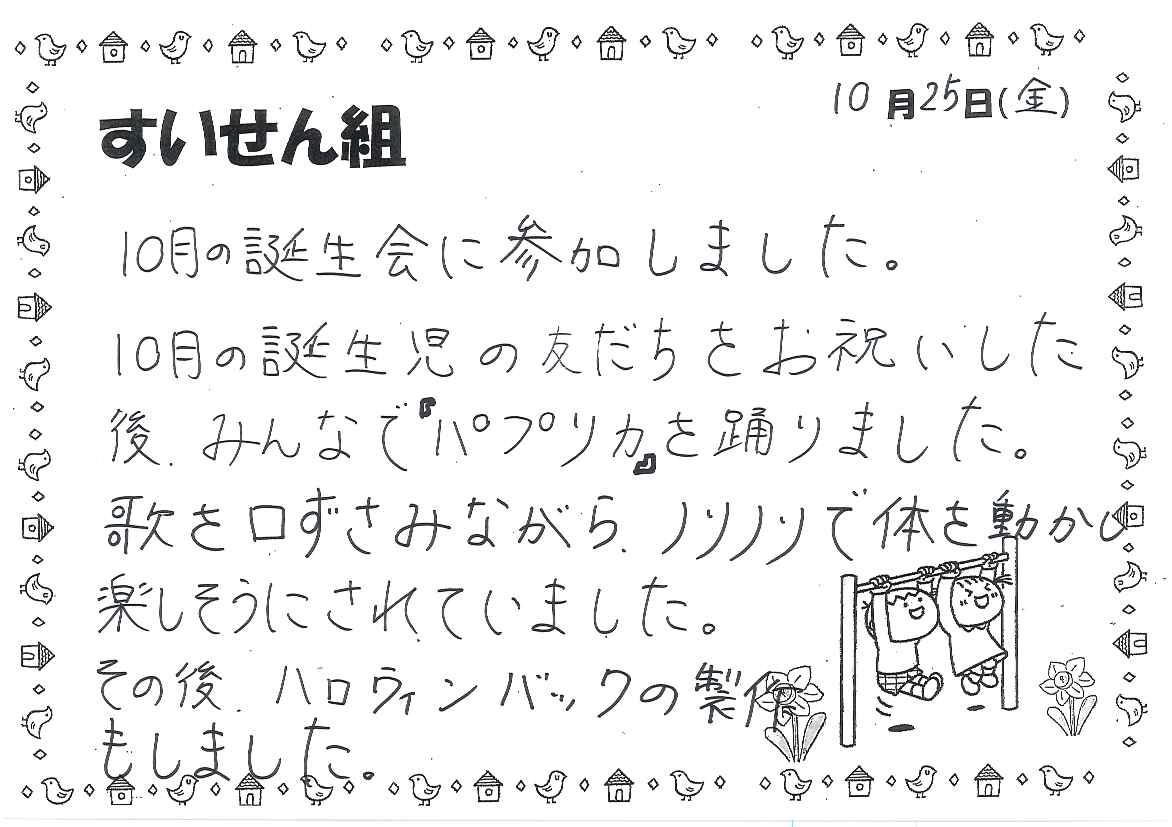 10月25日(金)
すいせん組
10月の誕生会に参加しました。
10月の誕生児の友だちをお祝いした
後、みんなで『パプリカ』を踊りました。
歌を口ずさみながら、ノリノリで体を動かし
楽しそうにされていました。
その後、ハロウィンバックの製作
もしました。